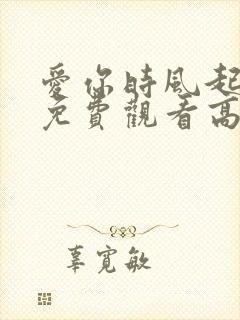 愛你時風起
免費觀看高
辜寬敏